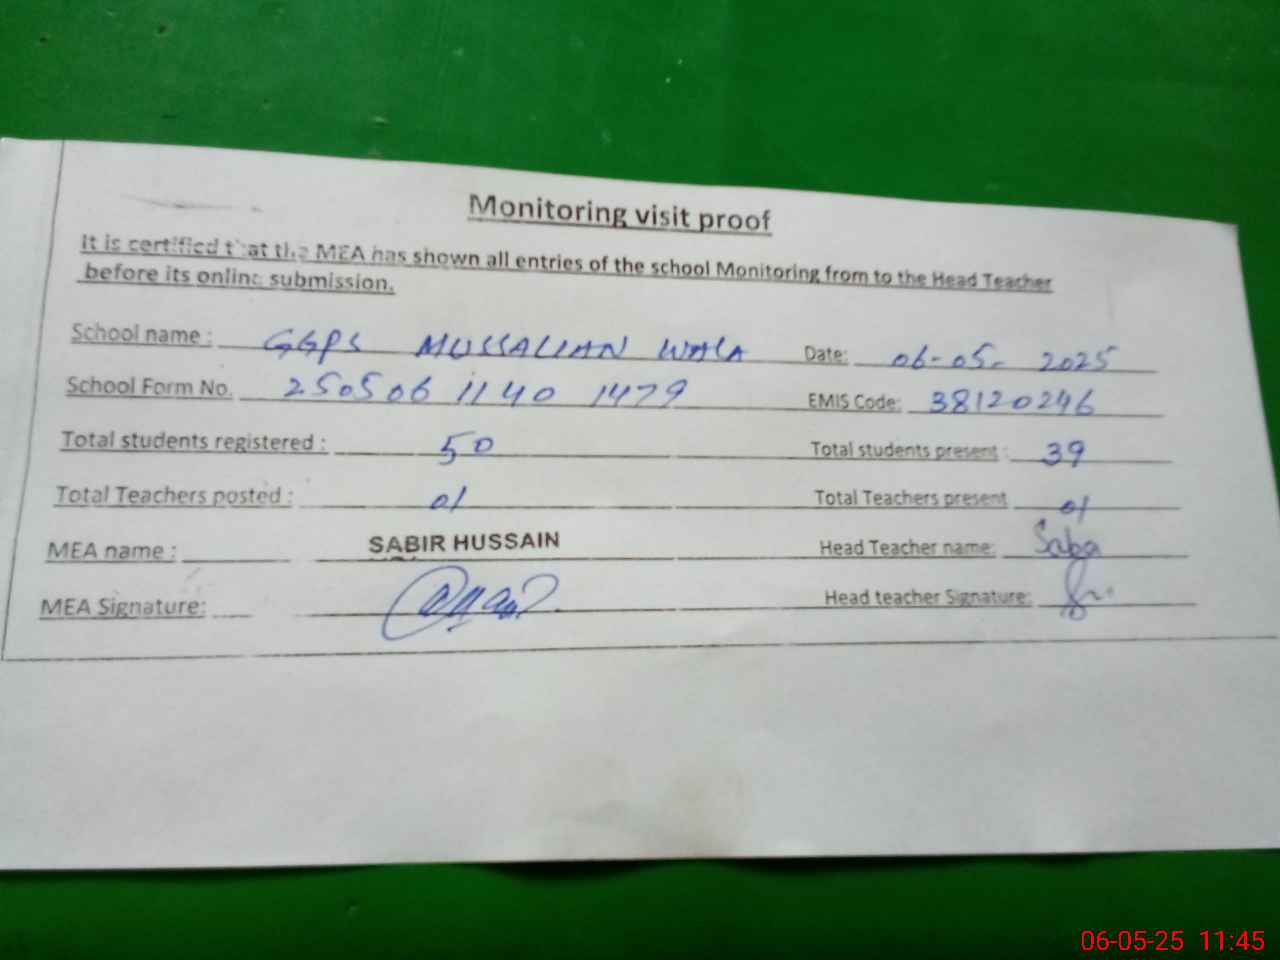 Monitoring visit proof
It is certified that the MEA has shown all entries of the school Monitoring from to the Head Teacher
before its online submission.
School name : GGPS MUSSALIAN WALA Date: 06-05-2025
School Form No. 250506 1140 1479 EMIS Code: 38120246
Total students registered : 50 Total students present : 39
Total Teachers posted : 01 Total Teachers present 01
MEA name : SABIR HUSSAIN Head Teacher name: Saba
MEA Signature: Head teacher Signature:
06-05-25 11:45